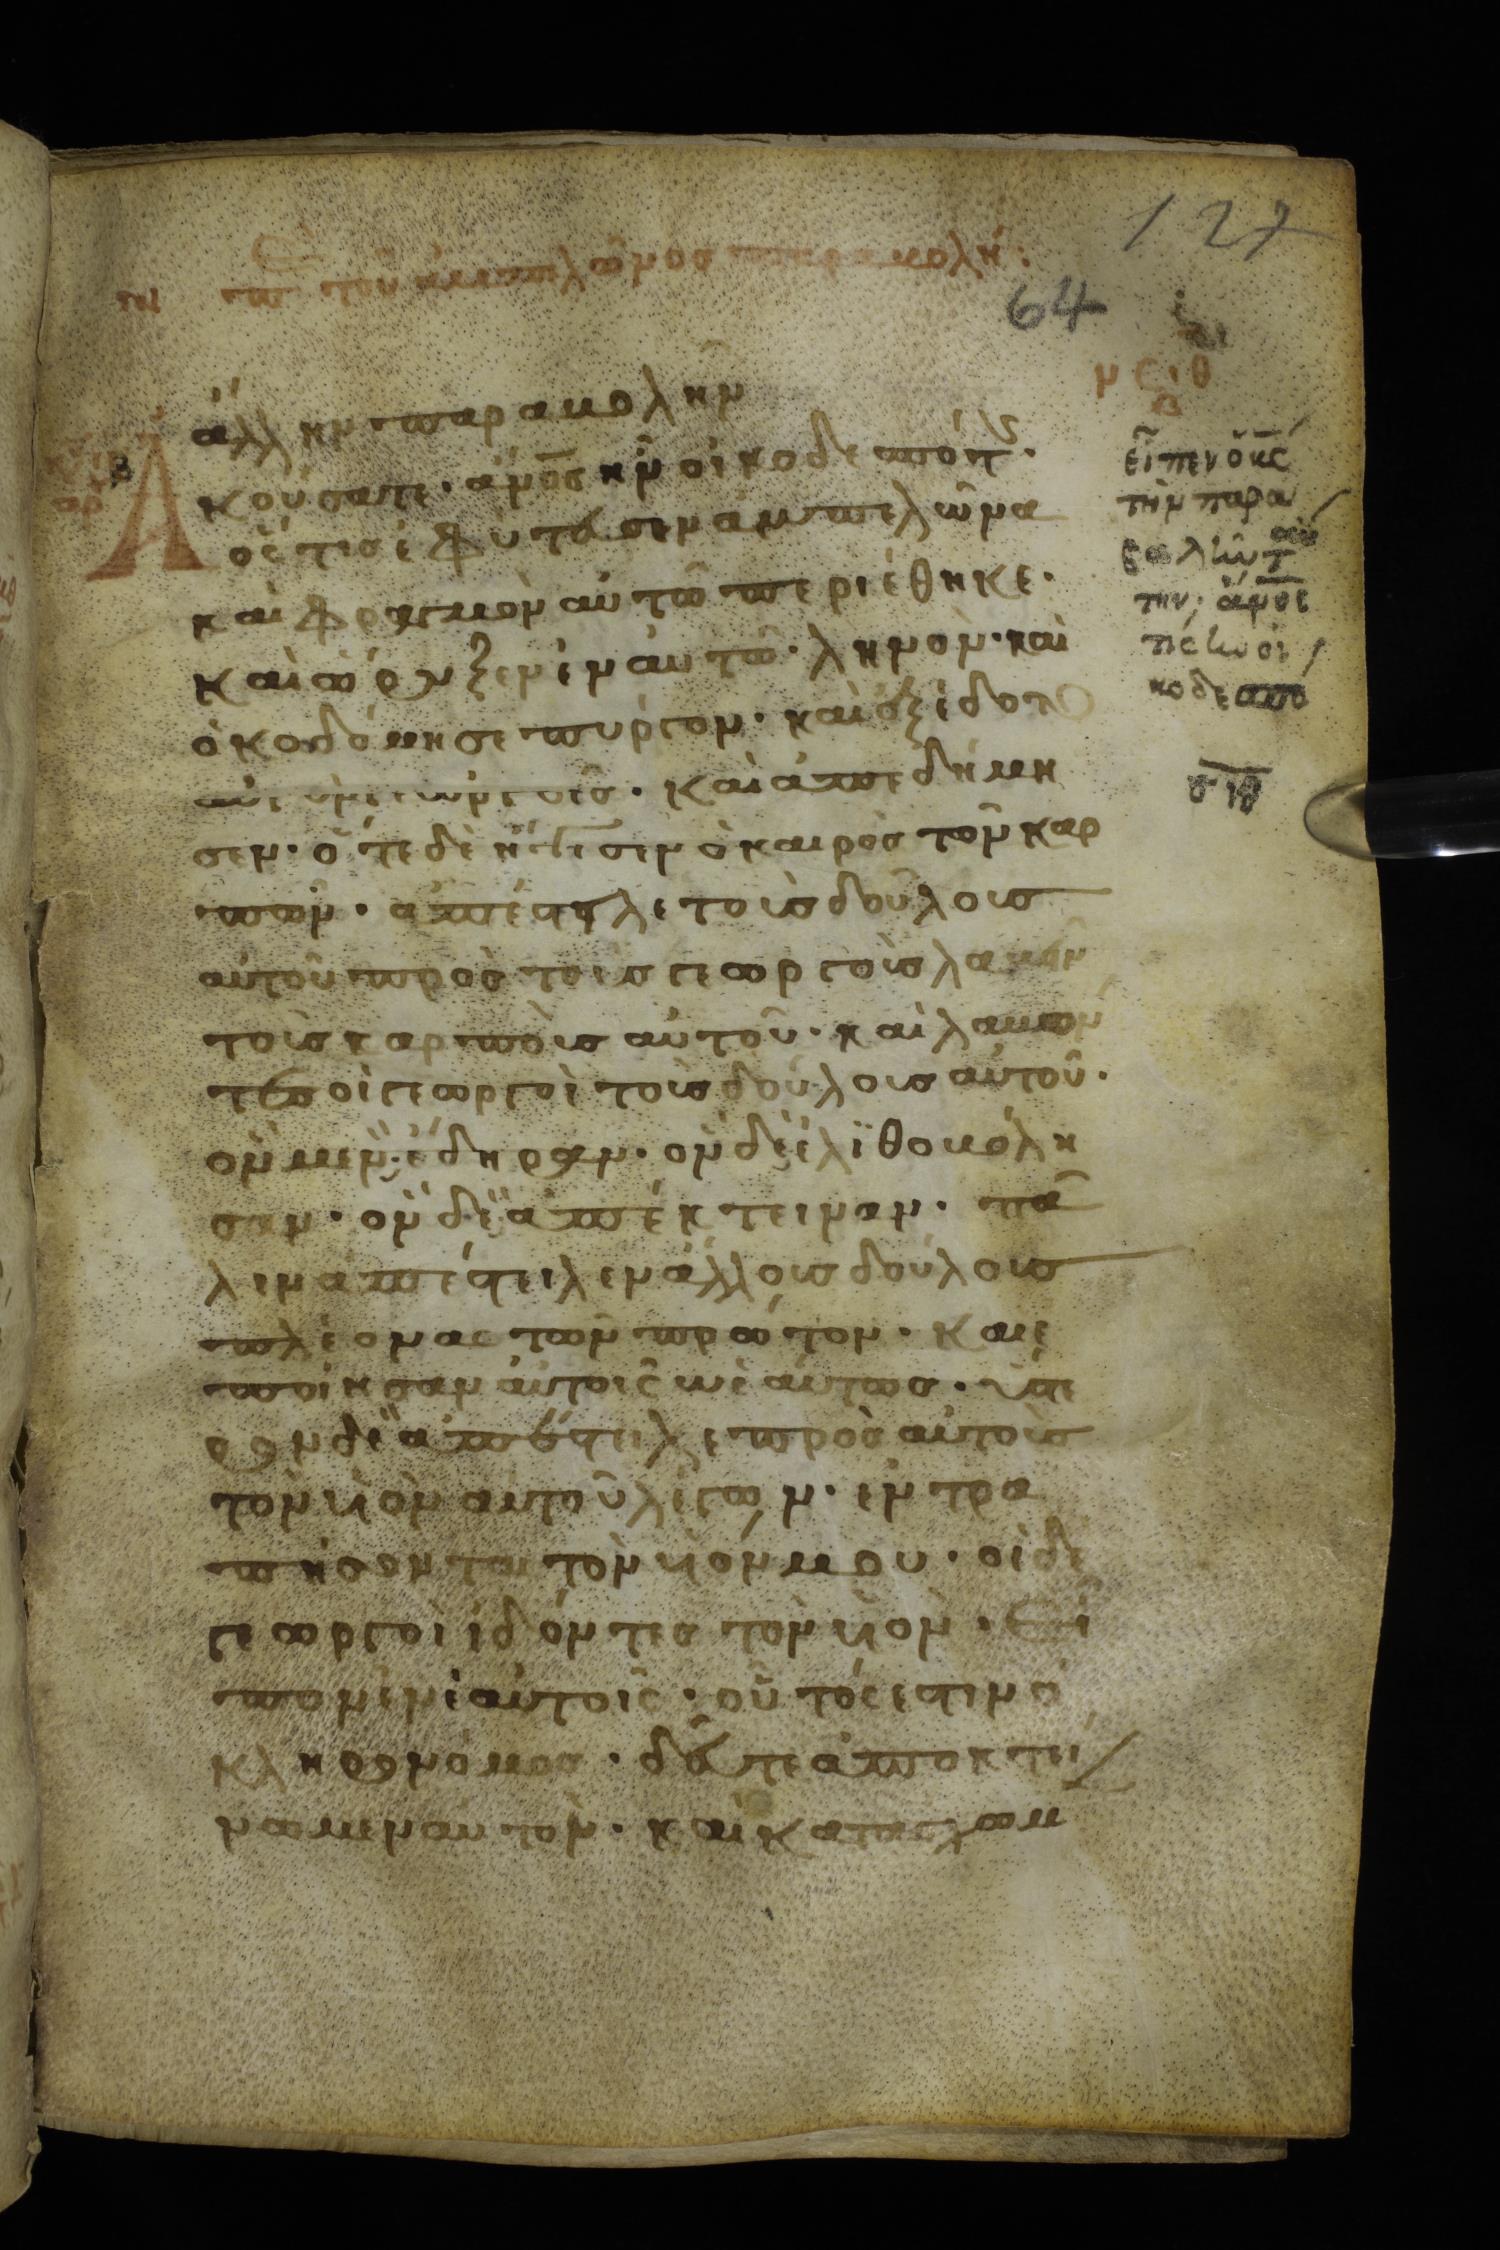 127
περὶ τοῦ ἀμπελῶνος παραβολή
64
ἄλλην παραβολὴν
κούσατε· ἄνος ἦν οἰκοδεσπότης·
ὅς τις ἐφύτευσεν ἀμπελῶνα
καὶ φραγμὸν αὐτῶ περιέθηκε·
καὶ ὤρυξεν ἐν αὐτῶ· ληνὸν· καὶ
ὀκοδόμησε πυργον· καὶ ἐξέδοτο
αὐτὸν γεωργοῖς· καὶ ἀπεδήμη
σεν· ὅτε δὲ ἤγγισεν ὁ καιρὸς τῶν καρ
πῶν· ἀπέστειλε τοὺς δούλους
αὐτοῦ πρὸς τοὺς γεωργοὺς λαβεῖν
τοὺς καρποὺς αὐτοῦ· καὶ λαβόν
τες οἱ γεωργοὶ τοὺς δούλους αὐτοῦ·
ὃν μὲν ἔδηραν· ὃν δὲ ἐλιθοβόλη
σαν· ὃν δὲ ἀπέκτειναν· πά
λιν ἀπέστειλεν ἄλλους δούλους
πλέονας τῶν πρώτον· καὶ ἐ
ποίησαν αὐτοῖς ὡσαύτως· ὕστε
ρον δὲ ἀπέστειλε πρὸς αὐτοὺς
τὸν υἱὸν αὐτοῦ λέγων· ἐντρα
πήσονται τὸν υἱόν μου· οἱ δὲ
γεωργοὶ ἰδόντες τὸν υἱὸν· εἶ
πον ἐν ἑαυτοῖς· οὗτός ἐστιν ὁ
κληρονόμος· δεῦτε ἀποκτεί
νωμεν αὐτὸν· καὶ κατάσχωμ
εἶπεν ὁ κς
τὴν παρα
βολὴν ταύ
την· ἄνος
τίς ἦν οἰ
κοδεσπό
σιθ